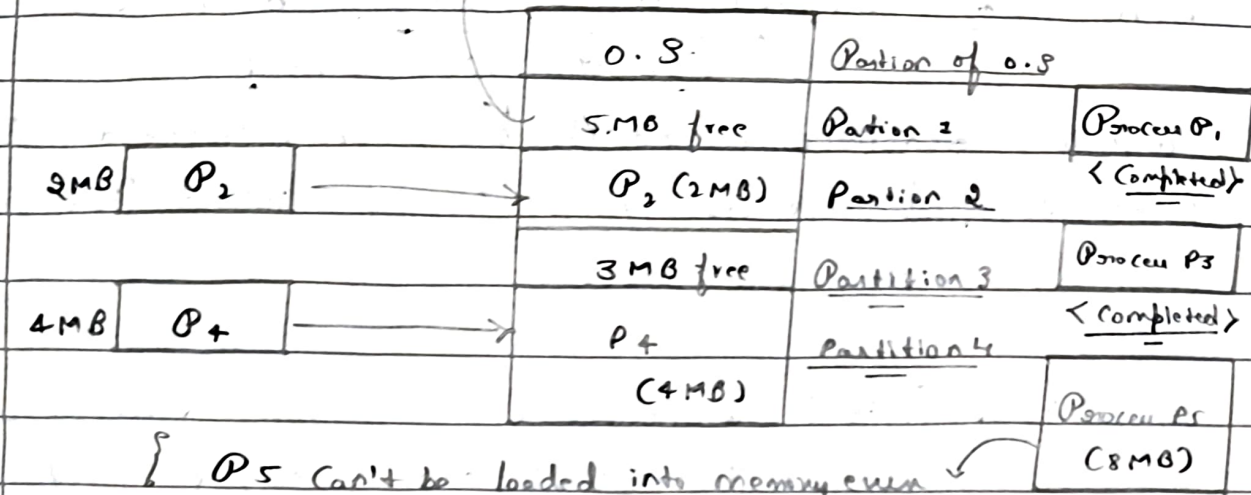 O.S. Portion of O.S
5.MB free Pation 1 Process P1
2MB P2 P2 (2MB) Partion 2 <Completed>
3 MB free Partition 3 Process P3
4MB P4 P4 Partition 4 <Completed>
(4MB) Process P5
(8MB)
{ P5 Can't be loaded into memory even